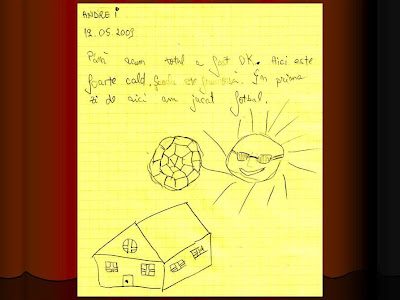 ANDREI
19.05.2009
Până acum totul a fost OK. Aici este
foarte cald, școala este frumoasă. În prima
zi de aici am jucat fotbal.